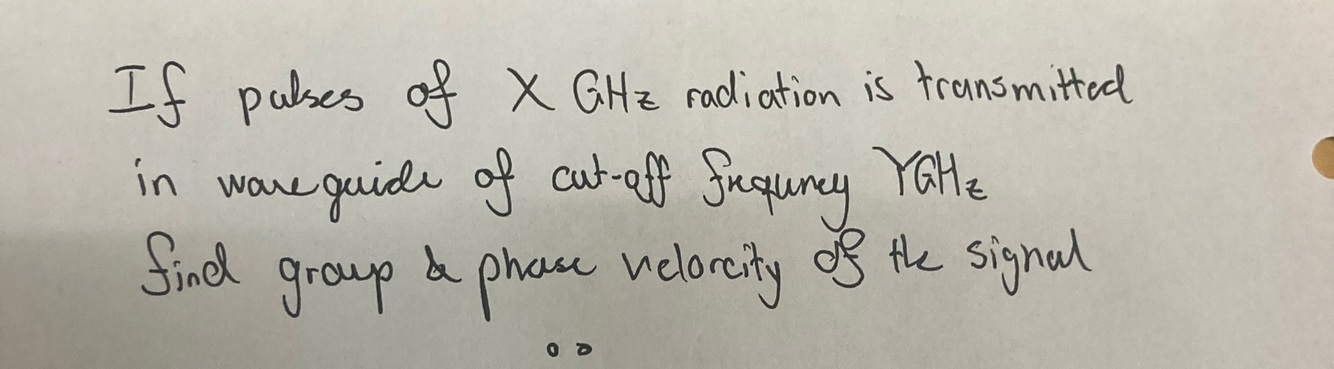 If pulses of X GHz radiation is transmitted
in waveguide of cut-off frequncy YGHz
find group & phase velorcity of the signal